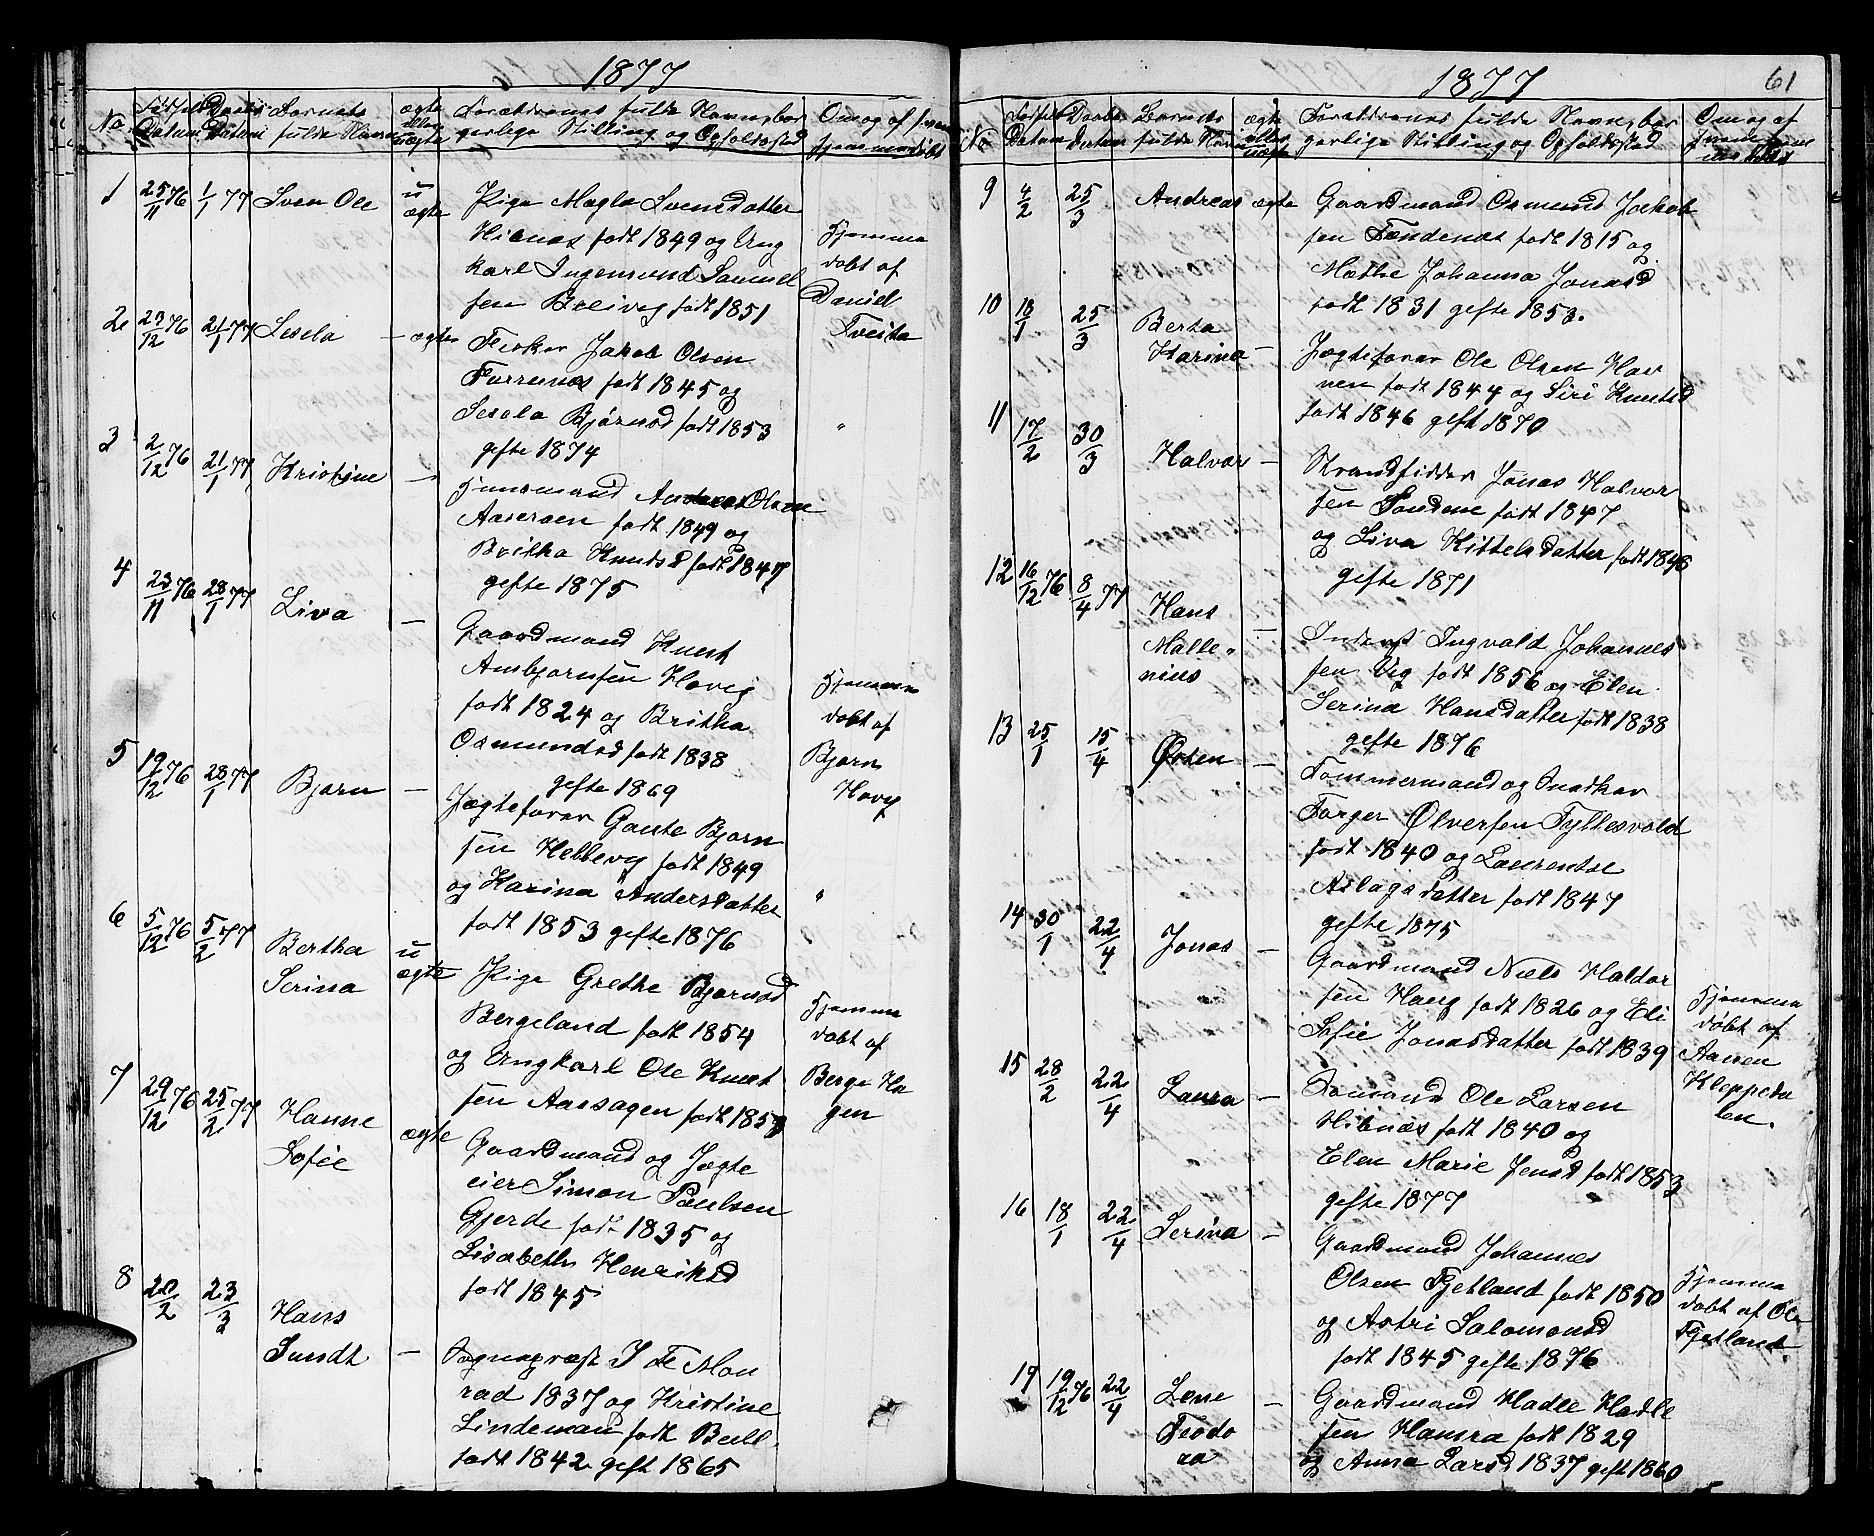 1877
No. Fødsels Datum Daabs Datum Barnets fulde Navn ægte eller uægte Forældrenes fulde Navn, bor
gerlige Stilling og Opholdssted Om og af hvem hjemmedøbt
1 25/11 76 1/1 77 Sven Ole u
ægte
Pige Magla Svensdatter
Hilsnæs født 1849 og Ung
karl Ingemund Samuel
sen Breivig født 1851
Hjemme
døbt af
Daniel
Tveita
2. 23/12 76 21/1 77 Sesela — ægte
Fisker Jakob Olsen
Furrenæs født 1845 og
Sesela Bjørnsd født 1853
gifte 1874
"
3 2/12 76 21/1 77 Kristine —
Huusmand Andreas Olsen
Aaseroen født 1849 og
Britha Knutsd født 1847
gifte 1875
4 23/11 76 28/1 77 Liva —
Gaardmand Knut
Ambjørnsen Hovig
født 1824 og Britha
Osmundsd født 1838
gifte 1869
Hjemme
døbt af
Bjørn
Hovig
5 19/12 76 28/1 77 Bjørn —
Jægtefører Gaute Bjørn
sen Hellevig født 1849
og Karina Andersdatter
født 1853 gifte 1876
"
6 5/12 76 5/2 77 Bertha
Serina
u
ægte
Pige Grethe Bjørnsd
Bergeland født 1854
og Ungkarl Ole Knut
sen Aarsagen født 1853
Hjemme
døbt af
Berge Ha
gen
7 29/12 76 25/2 77 Hanne
Sofie
ægte
Gaardmand og Jægte
eier Simon Paulsen
Gjerde født 1835 og
Lisabeth Henriksd
født 1845
8 20/2 23/3 Hans
Sundt —
Sognepræst I Fr Mon
rad 1837 og Kristine
Lindeman født Bull
født 1842 gift 1865
1877
61
No Fødsels Datum Daabs Datum Barnets fulde Navn ægte eller uægte Forældrenes fulde Navn, bor
gerlige Stilling og Opholdssted Om og af hvem hjemmedøbt
9 4/2 25/3 Andreas ægte
Gaardmand Osmund Jakob
sen Tendenæs født 1815 og
Mæthe Johanna Jonasd
født 1831 gifte 1853.
10 18/1 25/3 Berta
Karina —
Jægtefører Ole Olsen Hav
nen født 1844 og Siri Knutsd
født 1846 gift 1870
11 17/2 30/3 Halvor —
Strandsidder Jonas Halvor
sen Sandene født 1847
og Liva Kittelsdatter født 1848
gifte 1871
12 16/12 76 8/4 77 Hans
Malle-
nius
—
Inderst Ingvald Johannes
sen Vig født 1856 og Elen
Serina Hansdatter født 1838
gifte 1876
13 25/1 15/4 Østen —
Tømmermand og Snedker
Torger Ølversen Tyllesvold
født 1840 og Laurentse
Aslagsdatter født 1847
gifte 1875
14 30/1 22/4 Jonas —
Gaardmand Niels Haldor
sen Haug født 1826 og Eli
Sofie Jonasdatter født 1839
Hjemme
døbt af
Aanen
Kleppeda
len.
15 28/2 22/4 Laura —
Sømand Ole Larsen
Hilsnæs født 1840 og
Elen Marie Jensd født 1853
gifte 1877
16 18/1 22/4 Serina —
Gaardmand Johannes
Olsen Fjetland født 1850
og Astri Salomonsd
født 1845 gifte 1876
Hjemme
døbt af Ole
Fjetland.
19 19/12 76 22/4 Lene
Teodo
ra
—
Gaardmand Hadle Hadle
sen Hamra født 1829
og Anna Larsd 1837 gift 1860